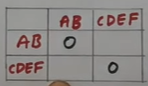 AB CDEF
AB O
CDEF O